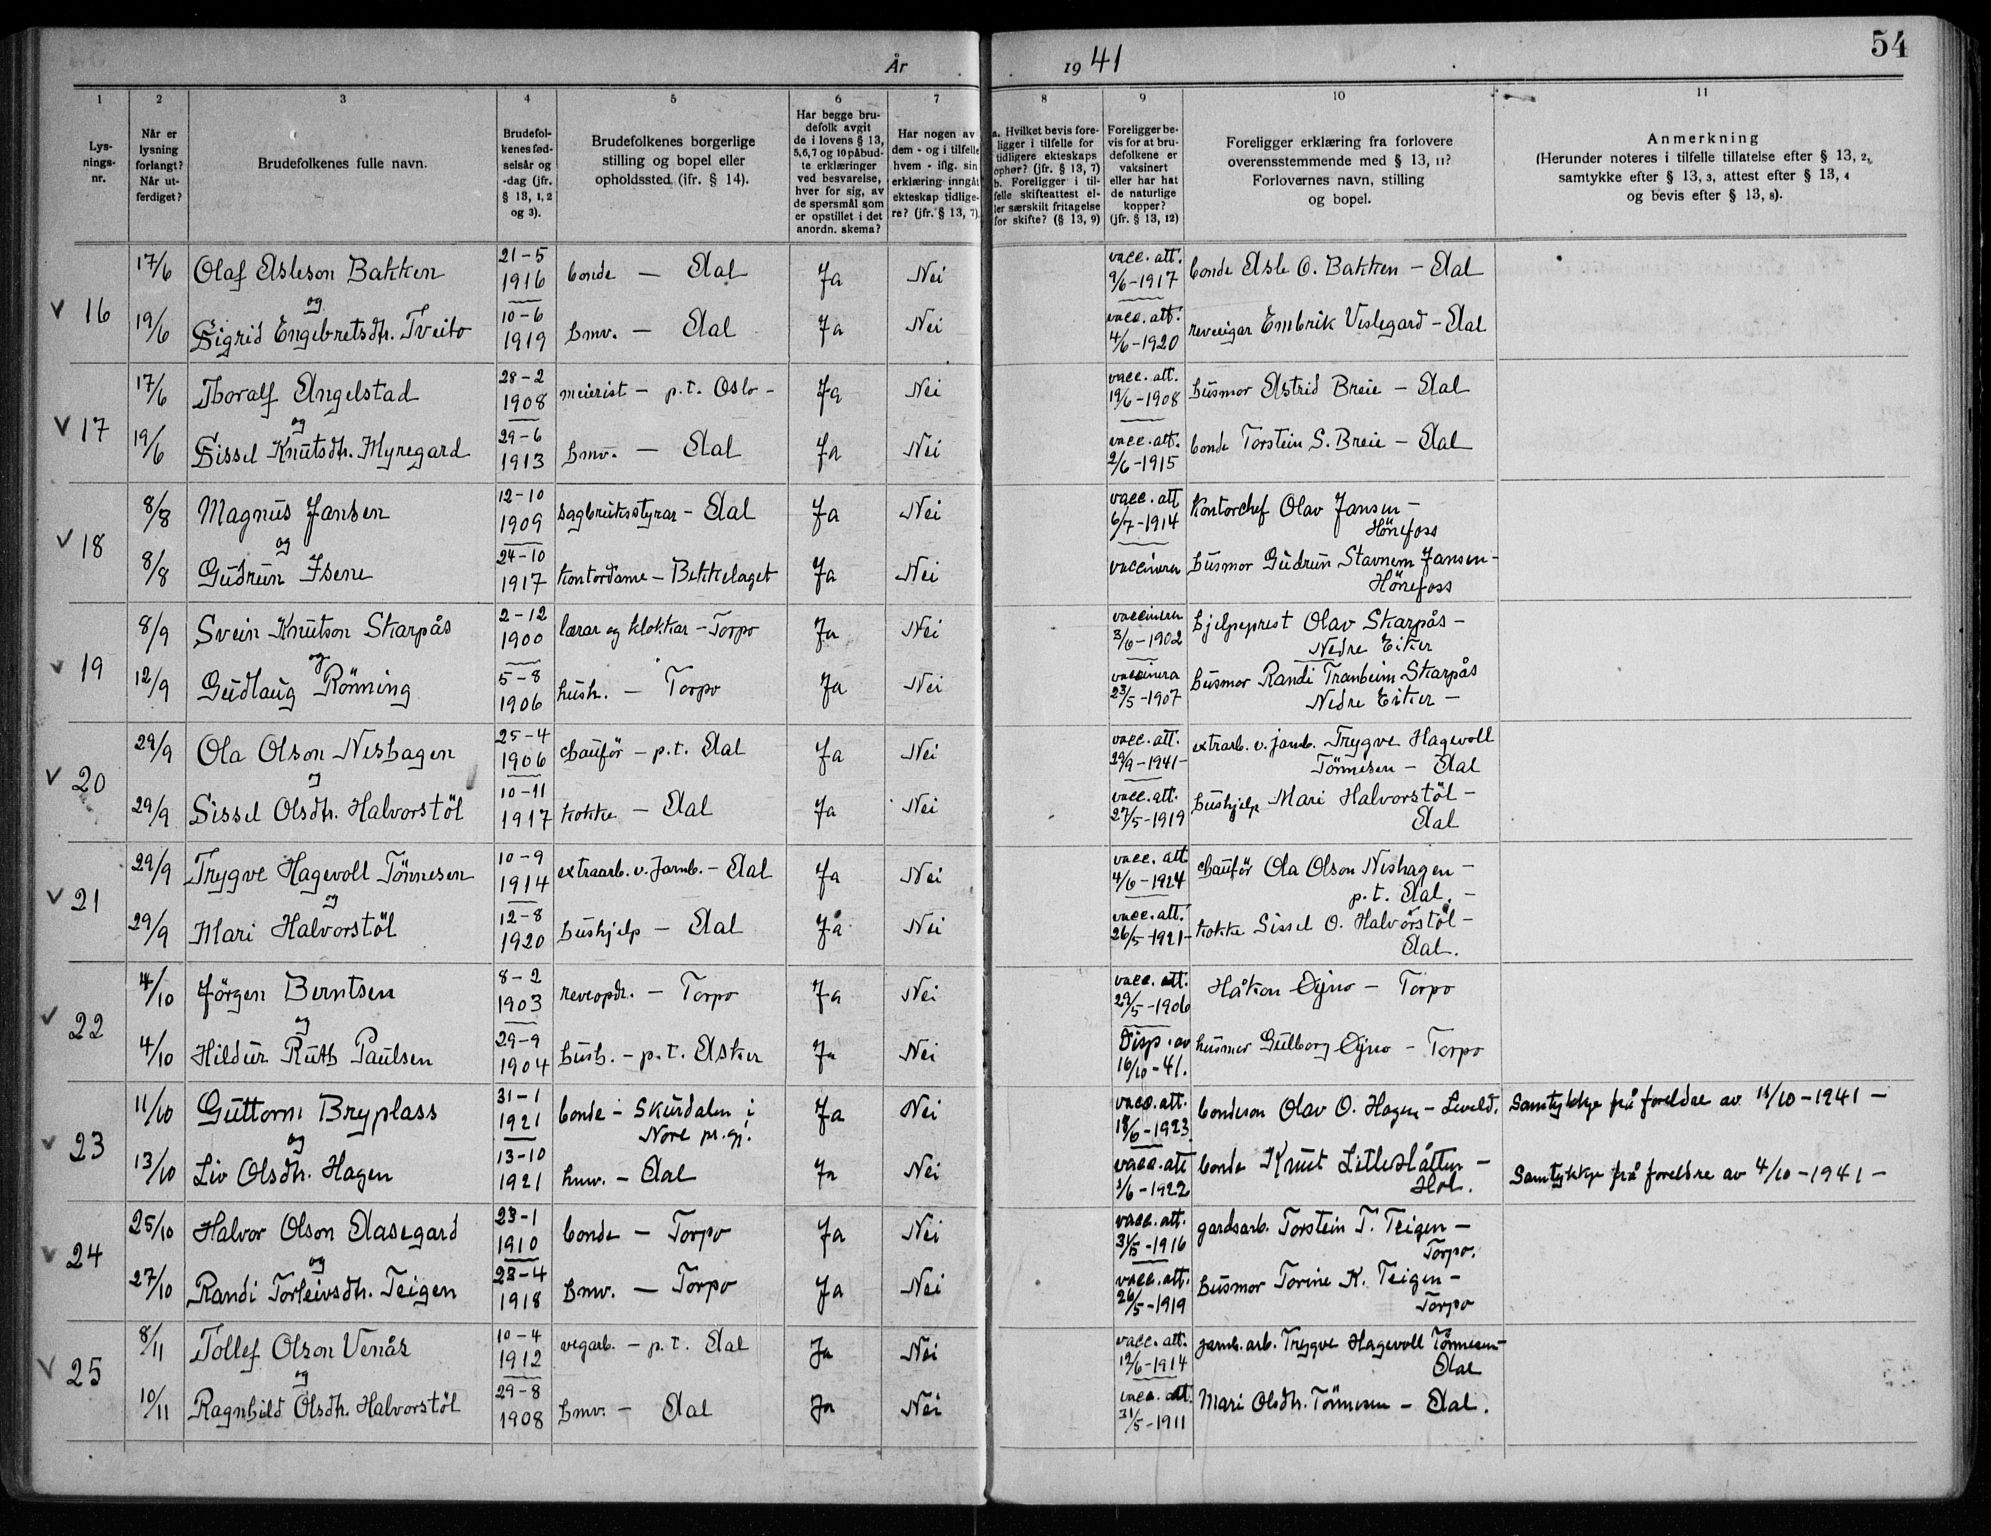 54
År 1941
1 2 3 4 5 6 7 8 9 10 11
Lys-
nings-
nr.
Når er
lysning
forlangt?
Når ut-
ferdiget?
Brudefolkenes fulle navn.
Brudefol-
kenes fød-
selsår og
-dag (jfr.
§ 13, 1, 2
og 3).
Brudefolkenes borgerlige
stilling og bopel eller
opholdssted (ifr. § 14).
Har begge bru-
defolk avgit
de i lovens § 13,
5,6,7 og 10 påbud-
te erklæringer
ved besvarelse,
hver for sig, av
de spørsmål som
er opstillet i det
anordn. skema?
Har nogen av
dem - og i tilfelle
hvem - iflg. sin
erklæring inngått
ekteskap tidlige-
re? (jfr. § 13, 7).
a. Hvilket bevis fore-
ligger i tilfelle for
tidligere ekteskaps
ophør? (jfr. § 13, 7)
b. Foreligger i til-
felle skifteattest el-
ler særskilt fritagelse
for skifte? (§ 13, 9)
Foreligger be-
vis for at bru-
defolkene er
vaksinert
eller har hat
de naturlige
kopper?
(jfr. § 13, 12)
Foreligger erklæring fra forlovere
overensstemmende med § 13, 11?
Forlovernes navn, stilling
og bopel.
Anmerkning
(Herunder noteres i tilfelle tillatelse efter § 13, 2,
samtykke efter § 13, 3, attest efter § 13, 4
og bevis efter § 13, 8).
v 16
17/6 Olaf Asleson Bakken 21-5 1916 bonde — Aal Ja Nei vacc. att. 9/6-1917 bonde Asle O. Bakken — Aal
og
19/6 Sigrid Engebretsdtr. Tveito 10-6 1919 hmv. — Aal Ja Nei vacc. att. 4/6-1920 reveeigar Embrik Veslegard - Aal
v 17
17/6 Thoralf Angelstad 28-2 1908 meierist — p.t. Oslo - Ja Nei vacc. att. 19/6-1908 husmor Astrid Breie — Aal
og
19/6 Sissel Knutsdtr. Myregard 29-6 1913 hmv. — Aal Ja Nei vacc. att. 2/6-1915 bonde Torstein S. Breie — Aal
v 18
8/8 Magnus Jansen 12-10 1909 sagbruksstyrar - Aal Ja Nei vacc. att 6/7-1914 Kontorchef Olav Jansen —
Hönefoss
og
8/8 Gudrun Isene 24-10 1917 kontordame — Bekkelaget Ja Nei vaccinera husmor Gudrun Stavnem Jansen -
Hönefoss
v 19
8/9 Svein Knutson Skarpås 2-12 1900 lærar og klokkar — Torpo Ja Nei vaccinera 3/6-1902 hjelpeprest Olav Skarpås —
Nedre Eiker
og
12/9 Gudlaug Rönning 5-8 1906 hush. — Torpo Ja Nei vaccinera 23/5-1907 husmor Randi Tranheim Skarpås
Nedre Eiker —
v 20
29/9 Ola Olson Neshagen 25-4 1906 chauför — p.t. Aal Ja Nei vacc. att. 29/9-1941- extrarb. v. jarnb. Trygve Hagevoll
Tönnesen — Aal
og
29/9 Sissel Olsdtr. Halvorstöl 10-11 1917 kokke — Aal Ja Nei vacc. att. 27/5-1919 hushjelp Mari Halvorstöl —
Aal
v 21
29/9 Trygve Hagevoll Tönnesen 10-9 1914 extraarb. v. Jarnb. — Aal Ja Nei vacc. att. 4/6-1924 chauför Ola Olson Neshagen —
p.t. Aal. —
og
29/9 Mari Halvorstöl 12-8 1920 hushjelp — Aal Ja Nei vacc. att. 26/5-1921- kokke Sissel O. Halvorstöl —
Aal.
v 22
4/10 Jörgen Berntsen 8-2 1903 reveopdr. — Torpo Ja Nei vacc. att. 29/5-1906 Håkon Öyno — Torpo
og
4/10 Hildur Ruth Paulsen 29-9 1904 hush. — p.t. Asker Ja Nei Disp. av 16/10-41. husmor Gulborg Öyno — Torpo
v 23
11/10 Guttorm Bryplass 31-1 1921 bonde — Skurdalen i
Nore pr.gj. Ja Nei vacc. att. 18/6-1923 bondeson Olav O. Hagen — Leveld. Samtykkje frå foreldre av 11/10-1941 —
og
13/10 Liv Olsdtr. Hagen 13-10 1921 hmv. — Aal Ja Nei vacc. att 1/6-1922 bonde Knut Litleslåtten —
Hol. Samtykkje frå foreldre av 4/10-1941 —
v 24
25/10 Halvor Olson Aasegard 23-1 1910 bonde — Torpo Ja Nei vacc. att. 31/5-1916 gardsarb. Torstein T. Teigen —
Torpo.
og
27/10 Randi Torleivsdtr. Teigen 23-4 1918 hmv. — Torpo Ja Nei vacc. att. 26/5-1919 husmor Torine K. Teigen —
Torpo
v 25
8/11 Tollef Olson Venås 10-4 1912 vegarb. — p.t. Aal Ja Nei vacc. att. 12/6-1914 jarnb. arb. Trygve Hagevoll Tönnesen —
Aal
og
10/11 Ragnhild Olsdtr. Halvorstöl 29-8 1908 hmv. — Aal Ja Nei vacc. att. 31/5-1911 Mari Olsdtr. Tönnesen — Aal.